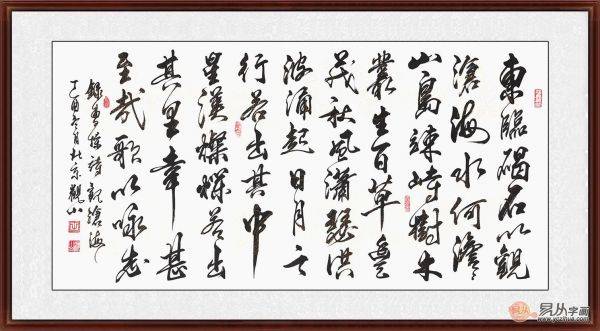 東臨碣石以觀
滄海水何澹
山島竦峙樹木
叢生百草豐
茂秋風瀟瑟洪
波涌起日月之
行若出其中
星漢燦爛若出
其里幸甚
至哉歌以咏志
錄曹操詩觀滄海
丁酉冬月於京觀山
易从字画
www.yczihua.com